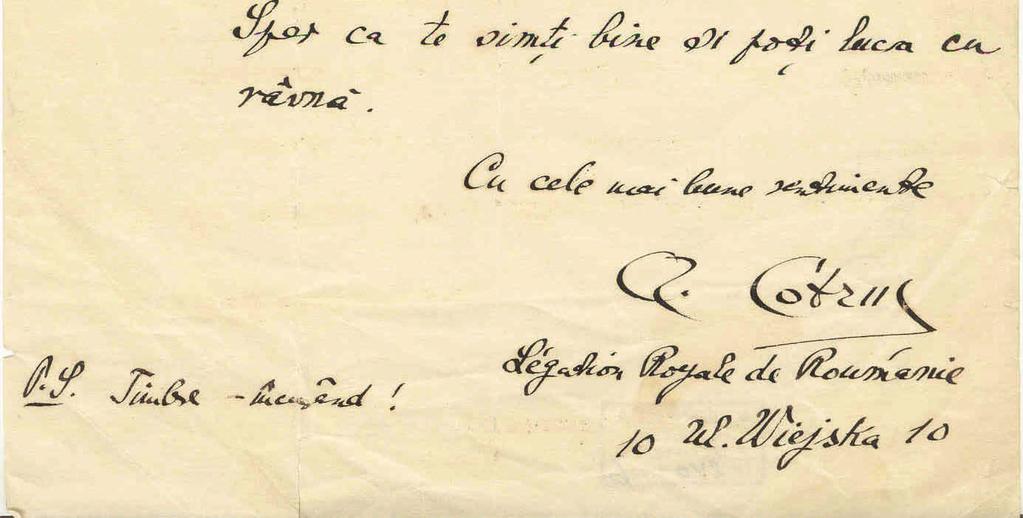 Sper ca te simți bine și poți lucra cu
râvnă.
Cu cele mai bune sentimente
A. Cotruș
Légation Royale de Roumanie
10 Ul. Wiejska 10
P.S. Timbre - în curând!